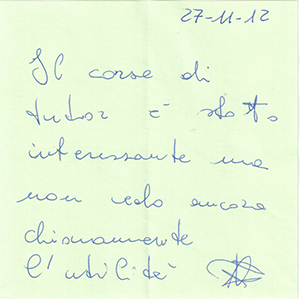 27-11-12
Il corso di
tutor è stato
interessante ma
non vedo ancora
chiaramente
l'utilità